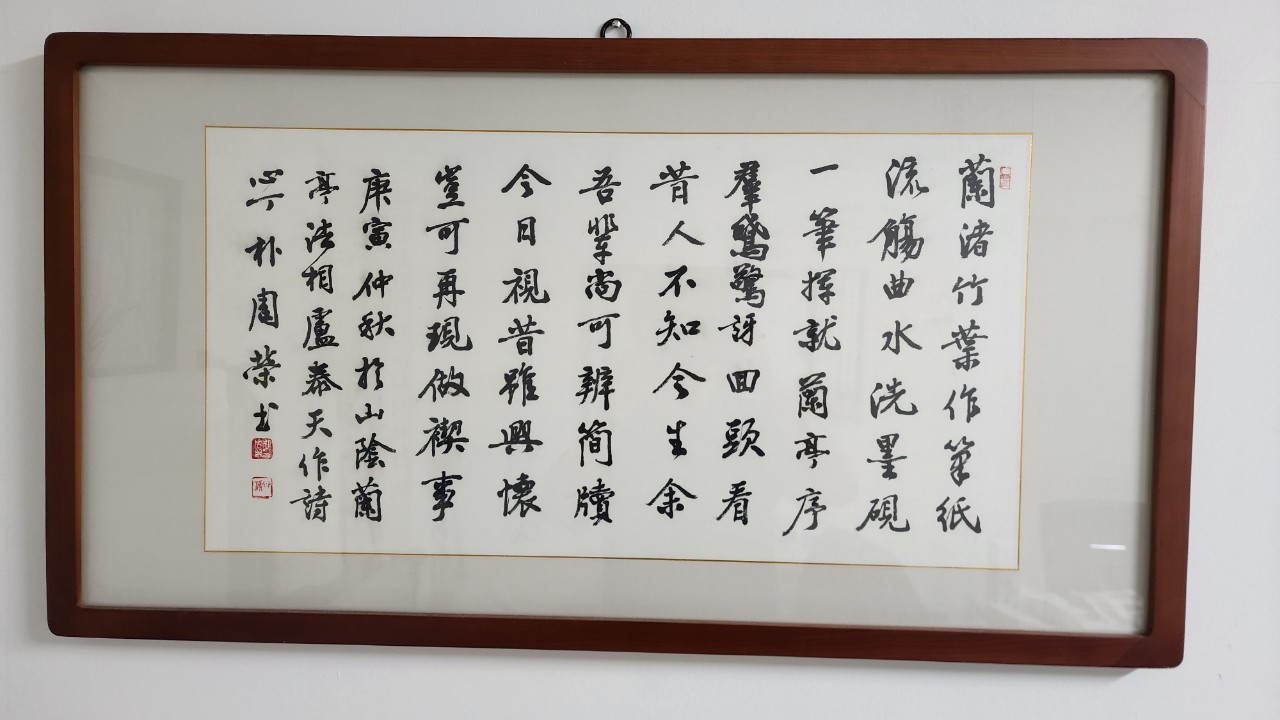 蘭渚竹葉作筆紙
流觴曲水洗墨硯
一筆揮就蘭亭序
羣鵞驚訝回頭看
昔人不知今生余
吾輩尚可辨简牘
今日視昔雖興懷
豈可再現做禊事
庚寅仲秋於山陰蘭
亭法相廬恭天作詩
心一朴園榮书